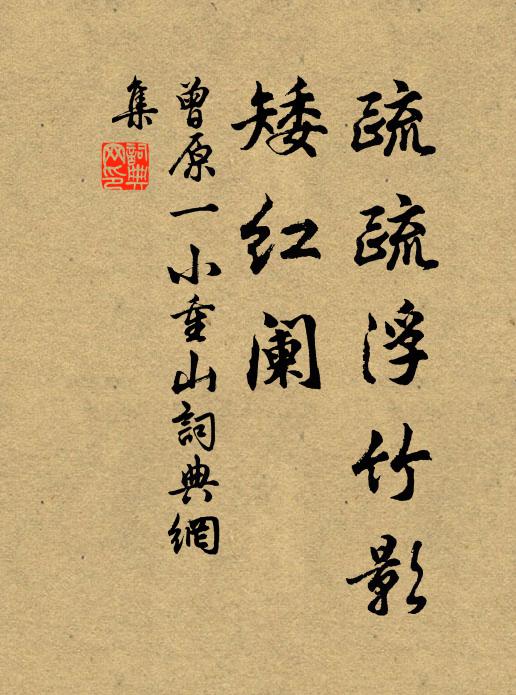 疏疏浮竹影
矮红阑
曾原一小重山詞典網
集
詞典网印